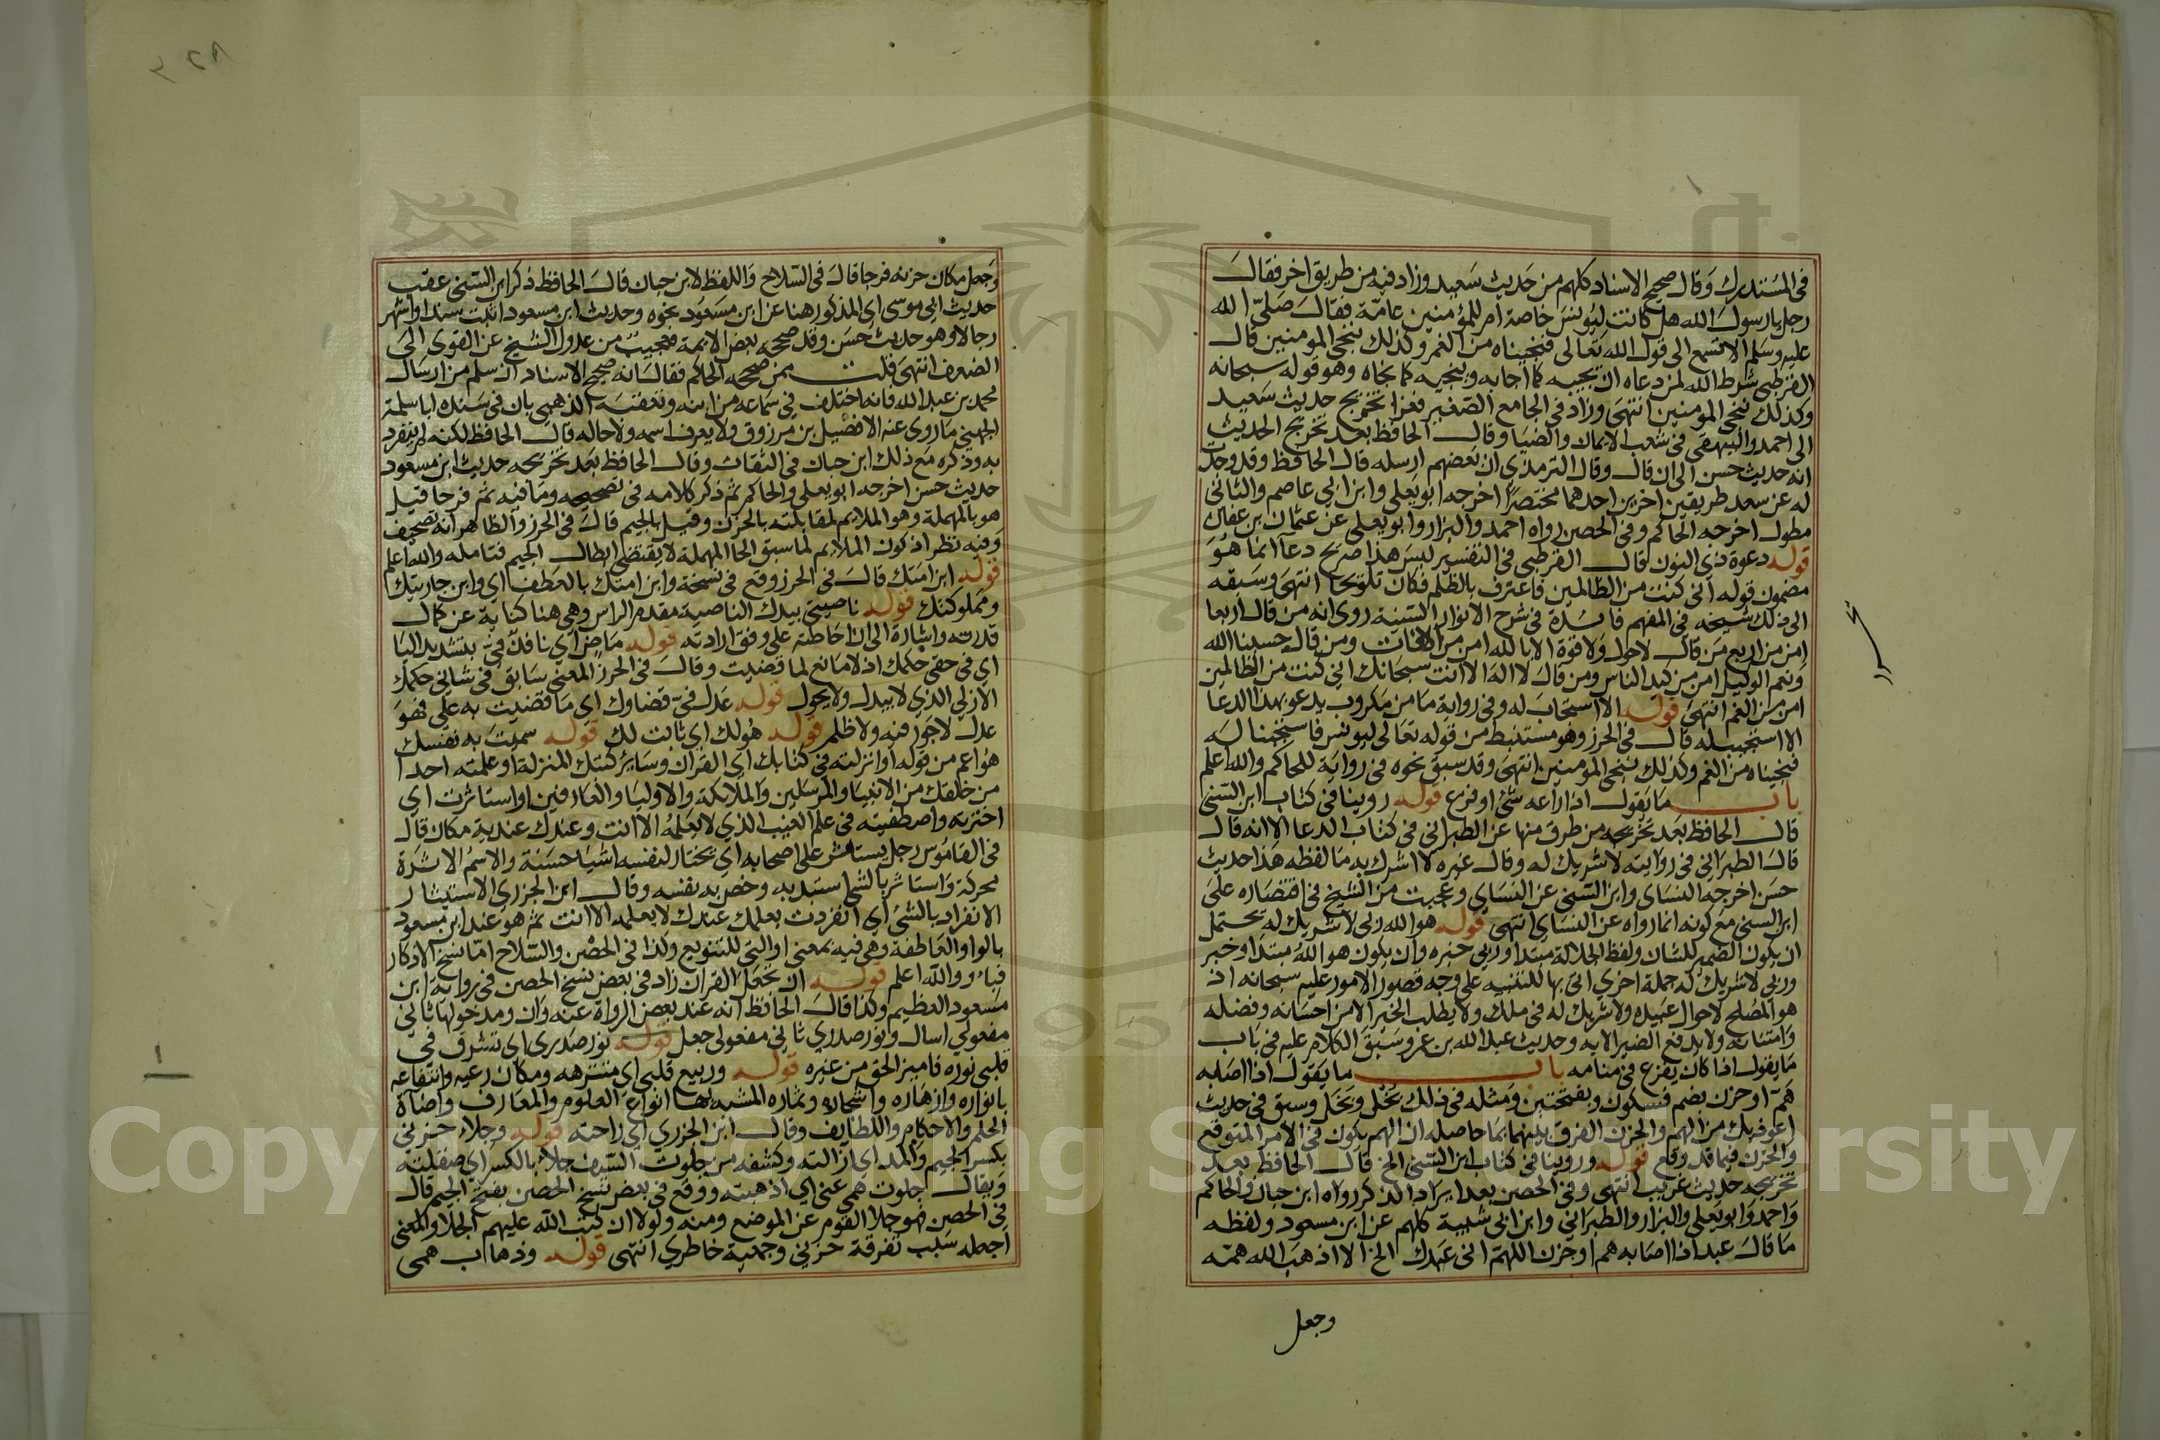 في المستدرك وقال صحيح الاسناد كلهم من حديث سعيد وزاد فيه من طريق اخر فقال
رجل يا رسول الله هل كانت ليونس خاصة ام للمؤمنين عامة فقال صلى الله
عليه وسلم الا تسمع الى قول الله تعالى فنجيناه من الغم وكذلك ننجي المومنين قال
القرطبي شرط الله لمن دعاه ان يجيبه كما اجابه وينجيه كما نجاه وهو قوله سبحانه
وكذلك ننجي المومنين انتهى وزاد في الجامع الصغير فعزا تخريج حديث سعيد
الى احمد والبيهقي في شعب الايمان والضيا وقال الحافظ بعد تخريج الحديث
انه حديث حسن الى ان قال وقال الترمذي ان بعضهم ارسله قال الحافظ وقد وجدت
له عن سعد طريقين اخرين احدهما مختصرا اخرجه ابو يعلى وابن ابي عاصم والثاني
مطول اخرجه الحاكم وفي الحصن رواه احمد والبزار وابو يعلى عن عثمان بن عفان
قوله دعوة ذي النون قال القرطبي في التفسير ليس هذا صريح دعا انما هو
مضمون قوله اني كنت من الظالمين فاعترف بالظلم فكان تلويحا انتهى وسبقه
الى ذلك شيخه في المفهم فائدة في شرح الانوار السنية روي انه من قال اربعا
امن من اربع من قال لاحول ولا قوة الا بالله امن من الافات ومن قال حسبنا الله
ونعم الوكيل امن من كيد الناس ومن قال لا اله الا انت سبحانك اني كنت من الظالمين
امن من الغم انتهى قوله الا استجاب له وفي رواية ما من مكروب يدعو بهذا الدعا
الا استجيب له قال في الحرز وهو مستنبط من قوله تعالى ليونس فاستجبنا له
فنجيناه من الغم وكذلك ننجي المومنين انتهى وقد سبق نحوه في رواية للحاكم والله اعلم
باب ما يقول اذا راعه شي او فزع قوله روينا في كتاب ابن السني
قال الحافظ بعد تخريجه من طرق منها عن الطبراني في كتاب الدعا الا انه قال
قال الطبراني في روايته لا شريك له وقال غيره لا اشرك به ما لفظه هذا حديث
حسن اخرجه النساي وابن السني عن النساي وعجبت من الشيخ في اقتصاره على
ابن السني مع كونه انما رواه عن النساي انتهى قوله هو الله ربي لا شريك له يحتمل
ان يكون الضمير للشان ولفظ الجلالة مبتدا وربي خبره وان يكون هو الله مبتدا وخبر
وربي لا شريك له جملة اخرى اتى بها للتنبيه على وجه قصور الامور عليه سبحانه اذ
هو المصلح لاحوال عبيده ولا شريك له في ملك ولا يطلب الخير الا من احسانه وفضله
وامتنانه ولا يدفع الضير الا به وحديث عبد الله بن عمرو سبق الكلام عليه في باب
ما يقول اذا كان يفزع في منامه باب ما يقول اذا اصابه
هم او حزن بضم فسكون وبفتحتين ومثله في ذلك بخل وبخل وسبق في حديث
اعوذ بك من الهم والحزن الفرق بينهما بما حاصله ان الهم يكون في الامر المتوقع
والحزن فيما قد وقع قوله وروينا في كتاب ابن السني الخ قال الحافظ بعد
تخريجه حديث غريب انتهى وفي الحصن بعد ايراد الذكر رواه ابن حبان والحاكم
واحمد وابو يعلى والبزار والطبراني وابن ابي شيبة كلهم عن ابن مسعود ولفظه
ما قال عبد اذا اصابه هم او حزن اللهم اني عبدك الخ الا اذهب الله همه
وجعل
وجعل مكان حزنه فرجا قال في السلاح واللفظ لابن حبان قال الحافظ ذكر ابن السني عقب
حديث ابي موسى اي المذكور هنا عن ابن مسعود نحوه وحديث ابن مسعود اثبت سندا واشهر
رجالا وهو حديث حسن وقد صححه بعض الايمة فعجيب من عدول الشيخ عن القوي الى
الضعف انتهى قلت ممن صححه الحاكم فقال انه صحيح الاسناد ان سلم من ارسال
محمد بن عبد الله فانه اختلف في سماعه من ابيه وتعقبه الذهبي بان في سنده ابا سلمة
الجهني ما روى عنه الا فضيل بن مرزوق ولا يعرف اسمه ولا حاله قال الحافظ لكنه لم ينفرد
به وذكره مع ذلك ابن حبان في الثقات وقال الحافظ بعد تخريجه حديث ابن مسعود
حديث حسن اخرجه ابو يعلى والحاكم ثم ذكر كلامه في تصحيحه وما فيه ثم فرحا قيل
هو بالمهملة وهو الملايم لمقابلته بالحزن وقيل بالجيم قال في الحرز والظاهر انه تصحيف
وفيه نظر اذ كون الملايم لما سبق الحا المهملة لا يقتضي ابطال الجيم فتامله والله اعلم
قوله ابن امتك قال في الحرز وقع في نسخة وابن امتك بالعطف اي وابن جاريتك
ومملوكتك قوله ناصيتي بيدك الناصية مقدم الراس وهي هنا كناية عن كمال
قدرته واشارة الى ان احاطته على وفق ارادته قوله ماض اي نافذ في بتشديد اليا
اي في حقي حكمك اذ لا مانع لما قضيت وقال في الحرز المعنى سابق في شاني حكمك
الازلي الذي لا يبدل ولا يحول قوله عدل في قضاوك اي ما قضيت به علي فهو
عدل لا جور فيه ولا ظلم قوله هو لك اي ثابت لك قوله سميت به نفسك
هو اعم من قوله او انزلته في كتابك اي القران وساير كتبك المنزلة او علمته احدا
من خلقك من الانبيا والمرسلين والملائكة والاوليا والعارفين او استاثرت اي
اخترته واصطفيته في علم الغيب الذي لا يعلمه الا انت وعندك عندية مكان قال
في القاموس رجل يستاثر على اصحابه اي يختار لنفسه اشيا حسنة والاسم الاثرة
محركة واستاثر بالشي استبد به وخص به نفسه وقال ابن الجزري الاستيثار
الانفراد بالشي اي انفردت بعلمك عندك لا يعلمه الا انت ثم هو عند ابن مسعود
بالواو العاطفة وهي فيه بمعنى او التي للتنويع وكذا في الحصن والسلاح اما نسخ الاذكار
فباو والله اعلم قوله ان تجعل القران زاد في بعض نسخ الحصن في رواية ابن
مسعود العظيم وكذا قال الحافظ انه عند بعض الرواة عنه وان ومدخولها ثاني
مفعولي اسال ونور صدري ثاني مفعولي جعل قوله نور صدري اي تشرق في
قلبي نوره فاميز الحق من غيره قوله وربيع قلبي اي متنزهه ومكان رعيه وانتفاعه
بانواره وازهاره واشجاره وثماره المشبه بها انواع العلوم والمعارف واضاة
الحلم والاحكام واللطايف وقال ابن الجزري اي راحته قوله وجلاء حزني
بكسر الجيم والمد اي ازالته وكشفه من جلوت السيف جلاء بالكسر اي صقلته
ويقال جلوت همي عني اي اذهبته ووقع في بعض نسخ الحصن بفتح الجيم قال
في الحصن فهو جلا القوم عن الموضع ومنه ولولا ان كتب الله عليهم الجلا والمعنى
اجعله سبب تفرقة حزني وجمعية خاطري انتهى قوله وذهاب همي